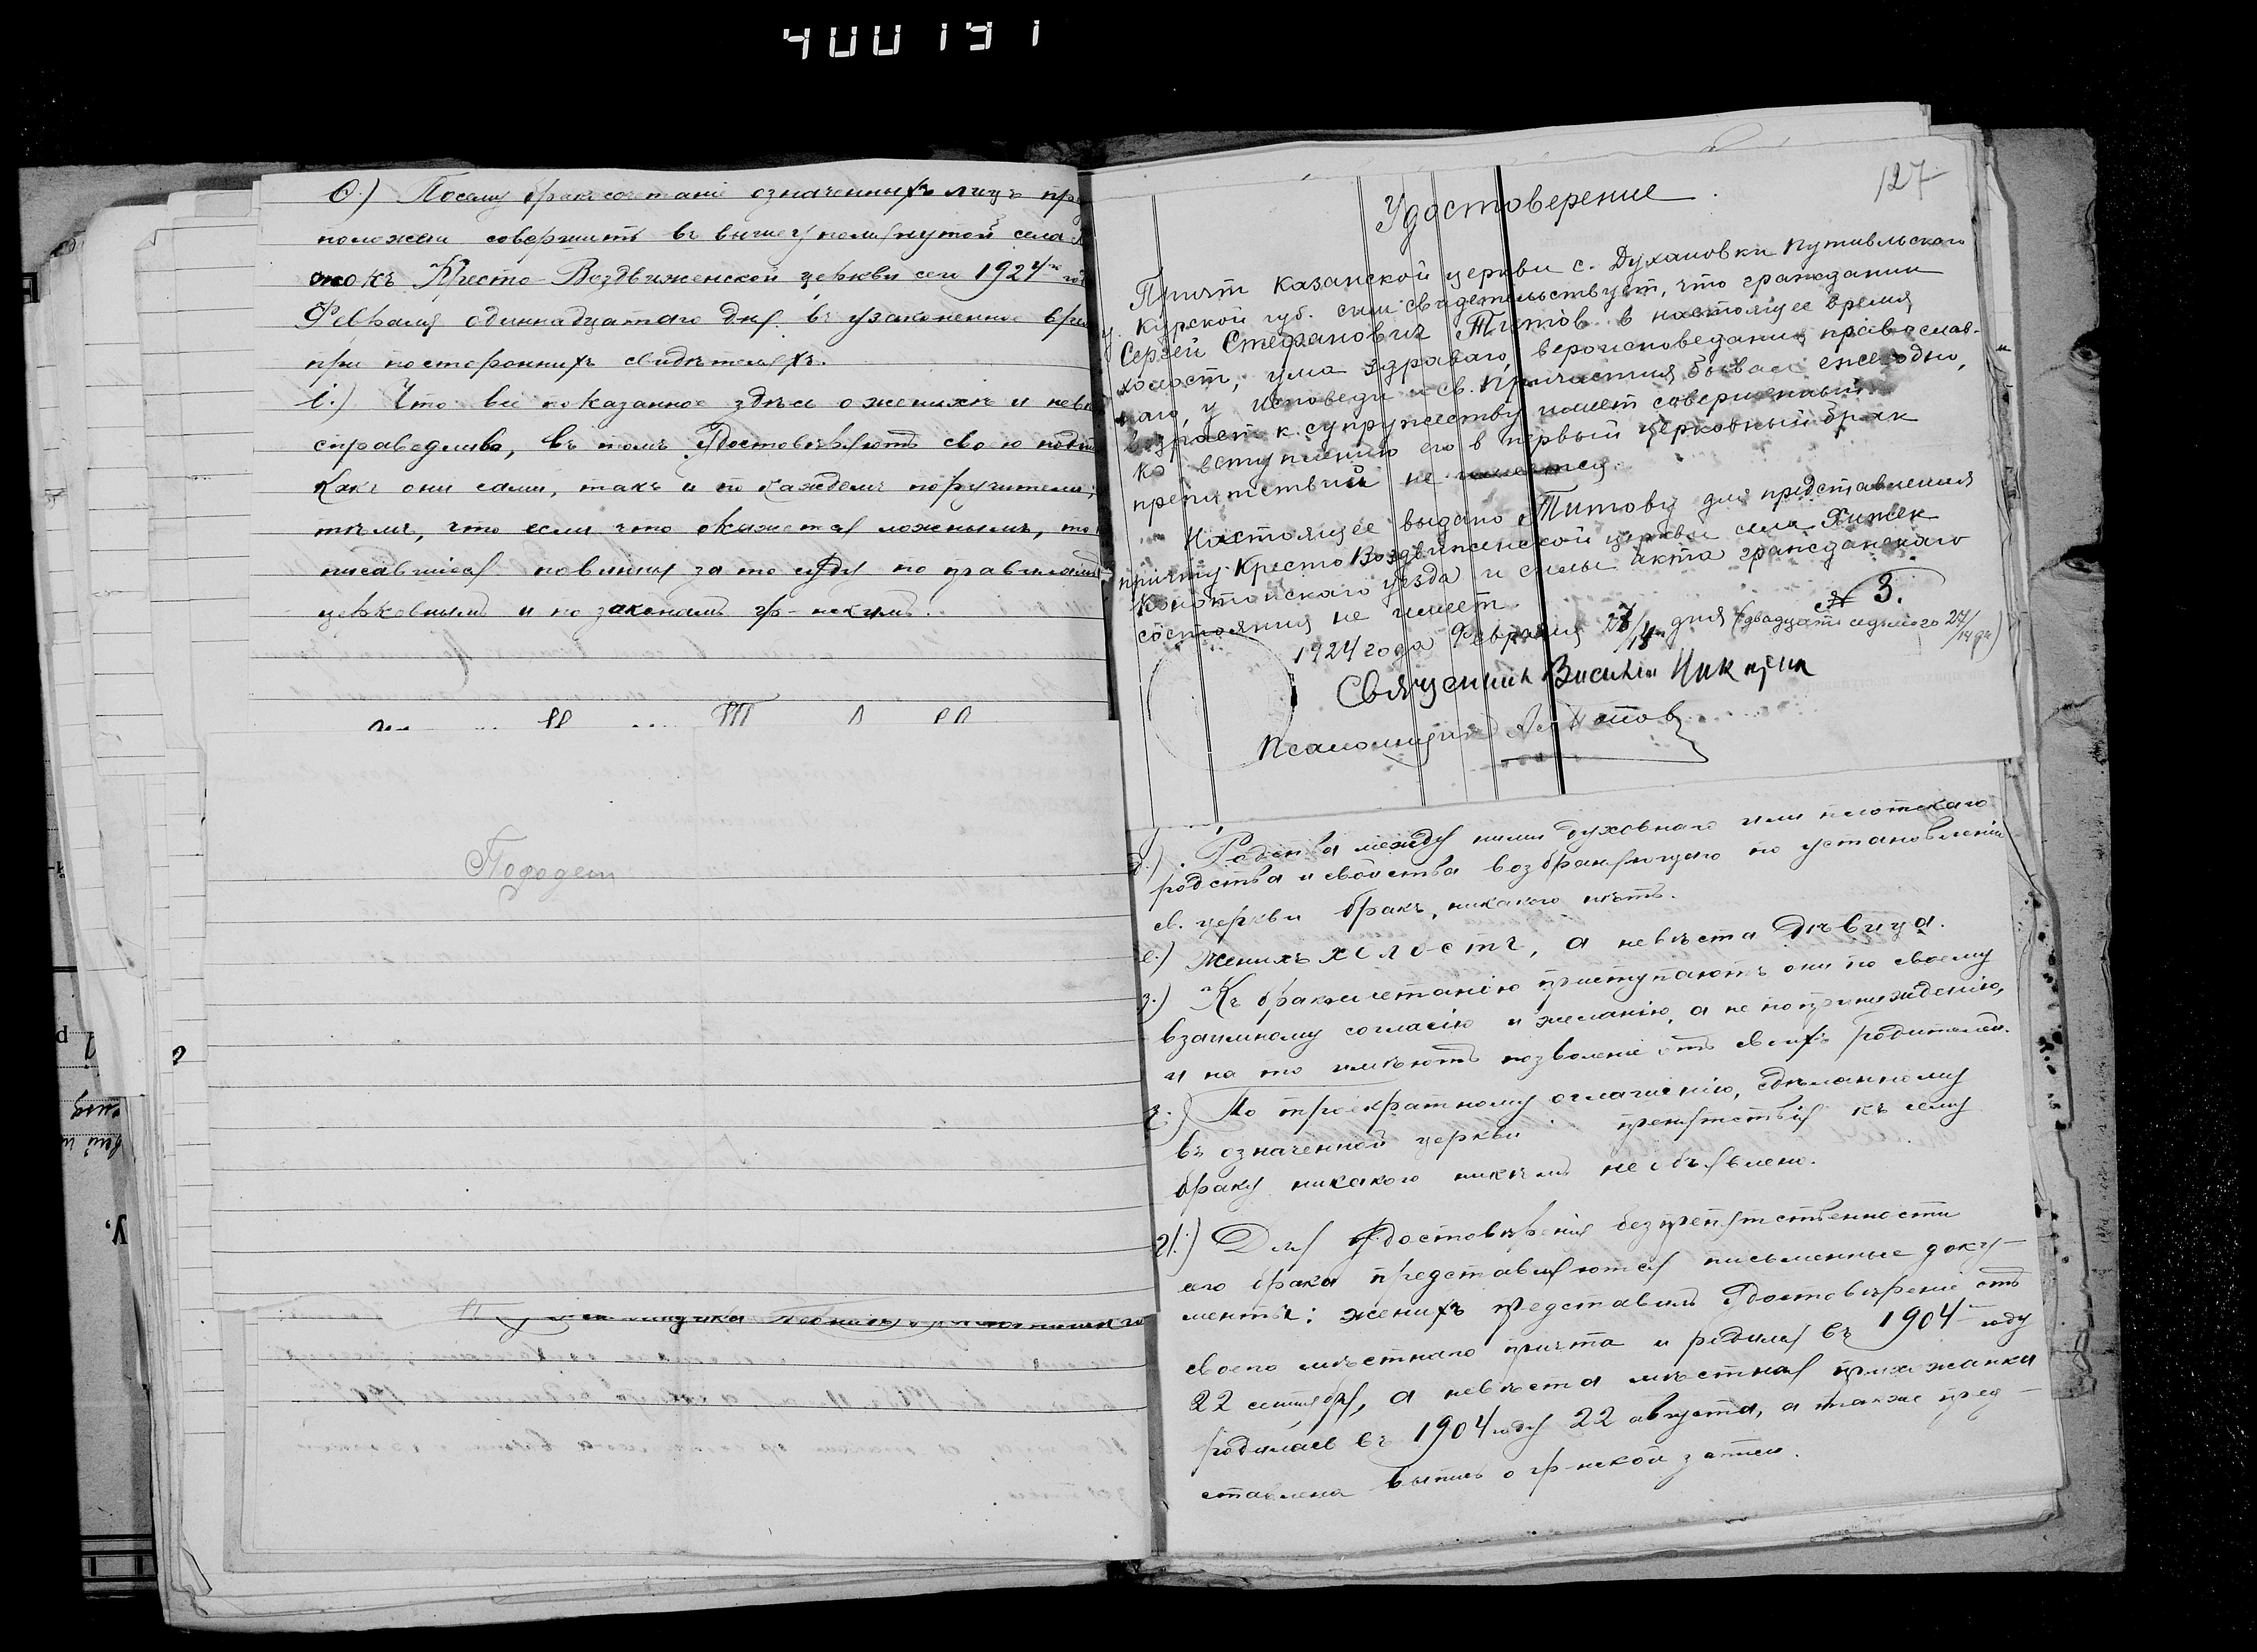 400191
Ѳ.) Посему бракосочетаніе означенныхъ лицъ пред
положено совершить въ вышеупомянутой села
Кресто-Воздвиженской церкви сего 1924го
Февраля одиннадцатаго дня въ узаконенное
при постороннихъ свидѣтеляхъ.
і.) Что всё показанное здѣсь о женихѣ и невѣ
справедливо, въ томъ удостовѣряютъ свою
какъ они сами, такъ и по каждомъ поручители,
тѣмъ, что если что окажется ложнымъ, то
писавшіеся повинны за то суду по правиламъ
церковнымъ и по законамъ гр-нскимъ.
127
Удостоверение
Причт Казанской церкви с. Духановки Путивльского
у. Курской губ. сим свидетельствует, что гражданин
Сергей Стефанович Титов в настоящее время
холост, ума здраваго, вероисповедания православ-
наго, у исповеди и св. Причастия бывал ежегодно,
возраст к супружеству имеет совершенный
ко вступлению его в первый церковный брак
препятствий не имеется.
Настоящее выдано Титову для представления
причту Кресто Воздвиженской церкви села Хижек
Конотопского уезда и силы акта гражданского
состояния не имеет.
№ 3.
1924 года Февраля 27/14 дня (двадцати седьмого 27/14 дня)
Священник Василий
Псаломщик
д.) Родства между ними духовнаго или плотскаго
родства и свойства возбраняющаго по установленію
св. церкви бракъ, никакого нѣтъ.
е.) Женихъ холостъ, а невѣста дѣвица.
з.) Къ бракосочетанію приступаютъ они по своему
взаимному согласію и желанію, а не по принужденію,
и на то имѣютъ позволеніе отъ своихъ родителей.
По троекратному оглашенію, сдѣланному
въ означенной церкви препятствія къ сему
браку никакого никѣмъ не объявлено.
Для удостовѣренія безпрепятственности
сего брака представляются письменные доку-
менты: женихъ представилъ удостовѣреніе отъ
своего мѣстнаго причта и родился въ 1904 году
22 сентября, а невѣста мѣстная прихожанка
родилась въ 1904 году 22 августа, а также пред-
ставлена выпись о гр-нской записи.